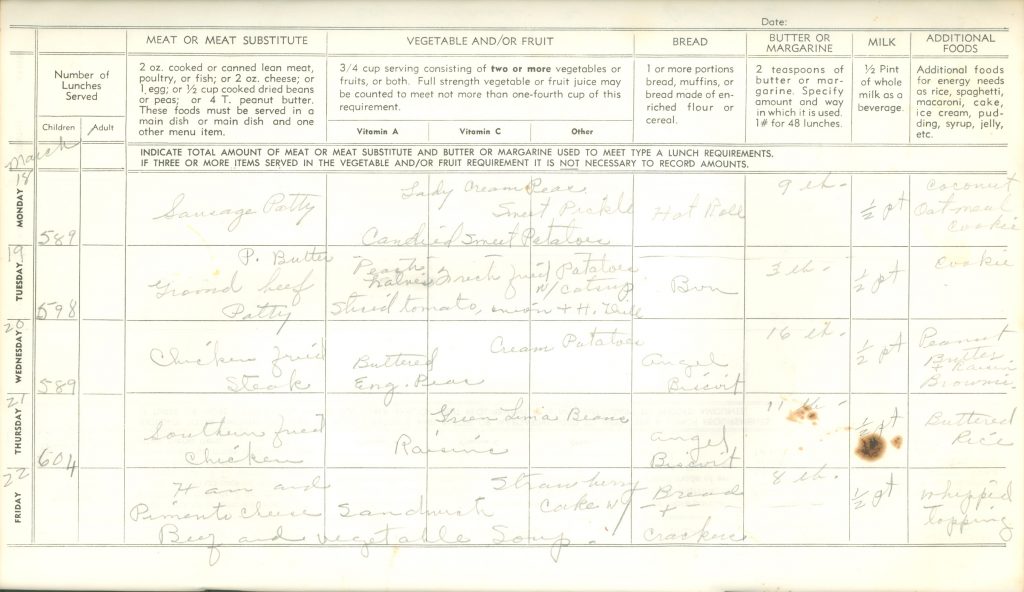 Date:
MEAT OR MEAT SUBSTITUTE
VEGETABLE AND/OR FRUIT
BREAD
BUTTER OR MARGARINE
MILK
ADDITIONAL FOODS
Number of Lunches Served
Children
Adult
2 oz. cooked or canned lean meat,
poultry, or fish; or 2 oz. cheese; or
1 egg; or ½ cup cooked dried beans
or peas; or 4 T. peanut butter.
These foods must be served in a
main dish or main dish and one
other menu item.
3/4 cup serving consisting of two or more vegetables or
fruits, or both. Full strength vegetable or fruit juice may
be counted to meet not more than one-fourth cup of this
requirement.
Vitamin A
Vitamin C
Other
1 or more portions
bread, muffins, or
bread made of en-
riched flour or
cereal.
2 teaspoons of
butter or mar-
garine. Specify
amount and way
in which it is used.
1# for 48 lunches.
½ Pint
of whole
milk as a
beverage.
Additional foods
for energy needs
as rice, spaghetti,
macaroni, cake,
ice cream, pud-
ding, syrup, jelly,
etc.
INDICATE TOTAL AMOUNT OF MEAT OR MEAT SUBSTITUTE AND BUTTER OR MARGARINE USED TO MEET TYPE A LUNCH REQUIREMENTS.
IF THREE OR MORE ITEMS SERVED IN THE VEGETABLE AND/OR FRUIT REQUIREMENT IT IS NOT NECESSARY TO RECORD AMOUNTS.
March
18
MONDAY
589
Sausage Patty
Lady Cream Peas
Sweet Pickle
Candied Sweet Potatoes
Hot Roll
9 lb.
½ pt
Coconut
Oatmeal
Cookie
19
TUESDAY
598
P. Butter
Ground beef
Patty
Peach
halves
French fried Potatoes
w/ Catsup
Sliced tomato, onion + H. Dill
Bun
3 lb.
½ pt
Cookie
20
WEDNESDAY
589
Chicken fried
Steak
Cream Potatoes
Buttered
Eng. Peas
Angel
Biscuit
16 lb.
½ pt
Peanut
Butter
+ Raisin
Brownie
21
THURSDAY
604
Southern fried
Chicken
Green Lima Beans
Raisins
Angel
Biscuit
11 lb.
½ pt
Buttered
Rice
22
FRIDAY
Ham and
Pimento Cheese
Sandwich
Beef and vegetable Soup.
Strawberry
Cake w/
Bread
+
Crackers
8 lb.
½ pt
whipped
topping